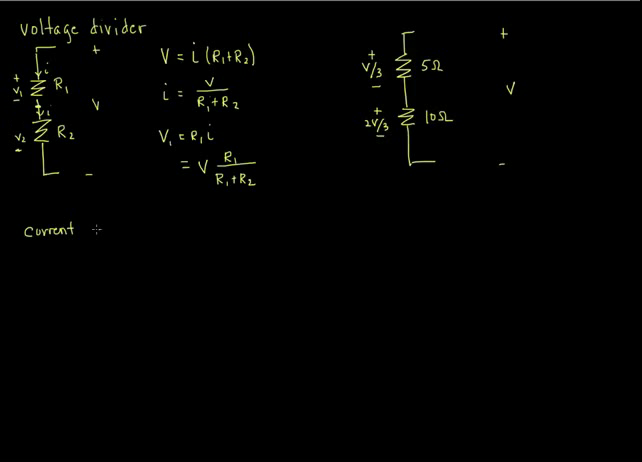 voltage divider
+
i
+
V₁
−
R₁
i
V
+
V₂
−
R₂
−
V = i (R₁+R₂)
i = V / R₁+R₂
V₁ = R₁ i
= V R₁ / R₁+R₂
+
+
V/3
−
5Ω
V
+
2V/3
−
10Ω
−
Current